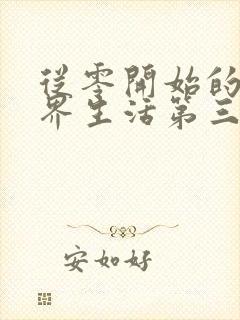 從零開始的
界生活第三
安如好